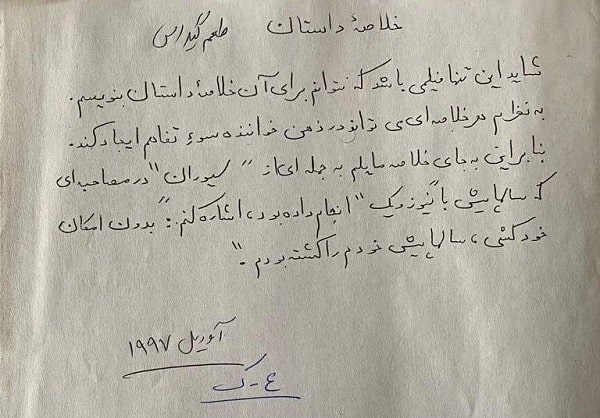 خلاصهٔ داستان طعم گیلاس
شاید این تنها فیلمی باشد که نتوانم برای آن خلاصهٔ داستان بنویسم.
به نظرم هر خلاصه‌ای می تواند در ذهن خواننده سوءِ تفاهم ایجاد کند.
بنابراین به جای خلاصه مایلم به جمله ای از "سیوران" در مصاحبه ای
که سالها پیش با "نیوزویک" انجام داده بود، اشاره کنم: "بدون امکان
خودکشی، سالها پیش خودم را کشته بودم."
آوریل ۱۹۹۷
ع-ک